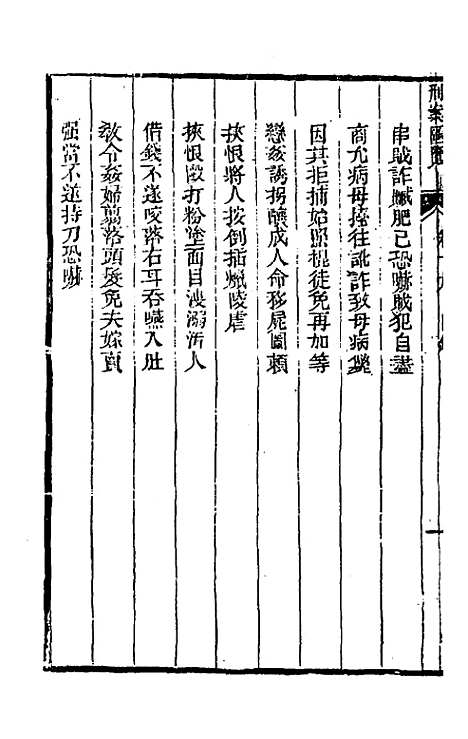 刑案匯覽
串賊詐贓肥已恐嚇賊犯自盡
商允病母撞往訛詐致母病斃
因其拒捕始照棍徒免再加等
戀姦誘拐釀成人命移屍圖賴
挾恨將人按倒插蠟陵虐
挾恨毆打粉塗面目潑溺汚人
借錢不遂咬落右耳吞嚥入肚
敎令姦婦翦落頭髮免夫嫁賣
强當不遂持刀恐嚇